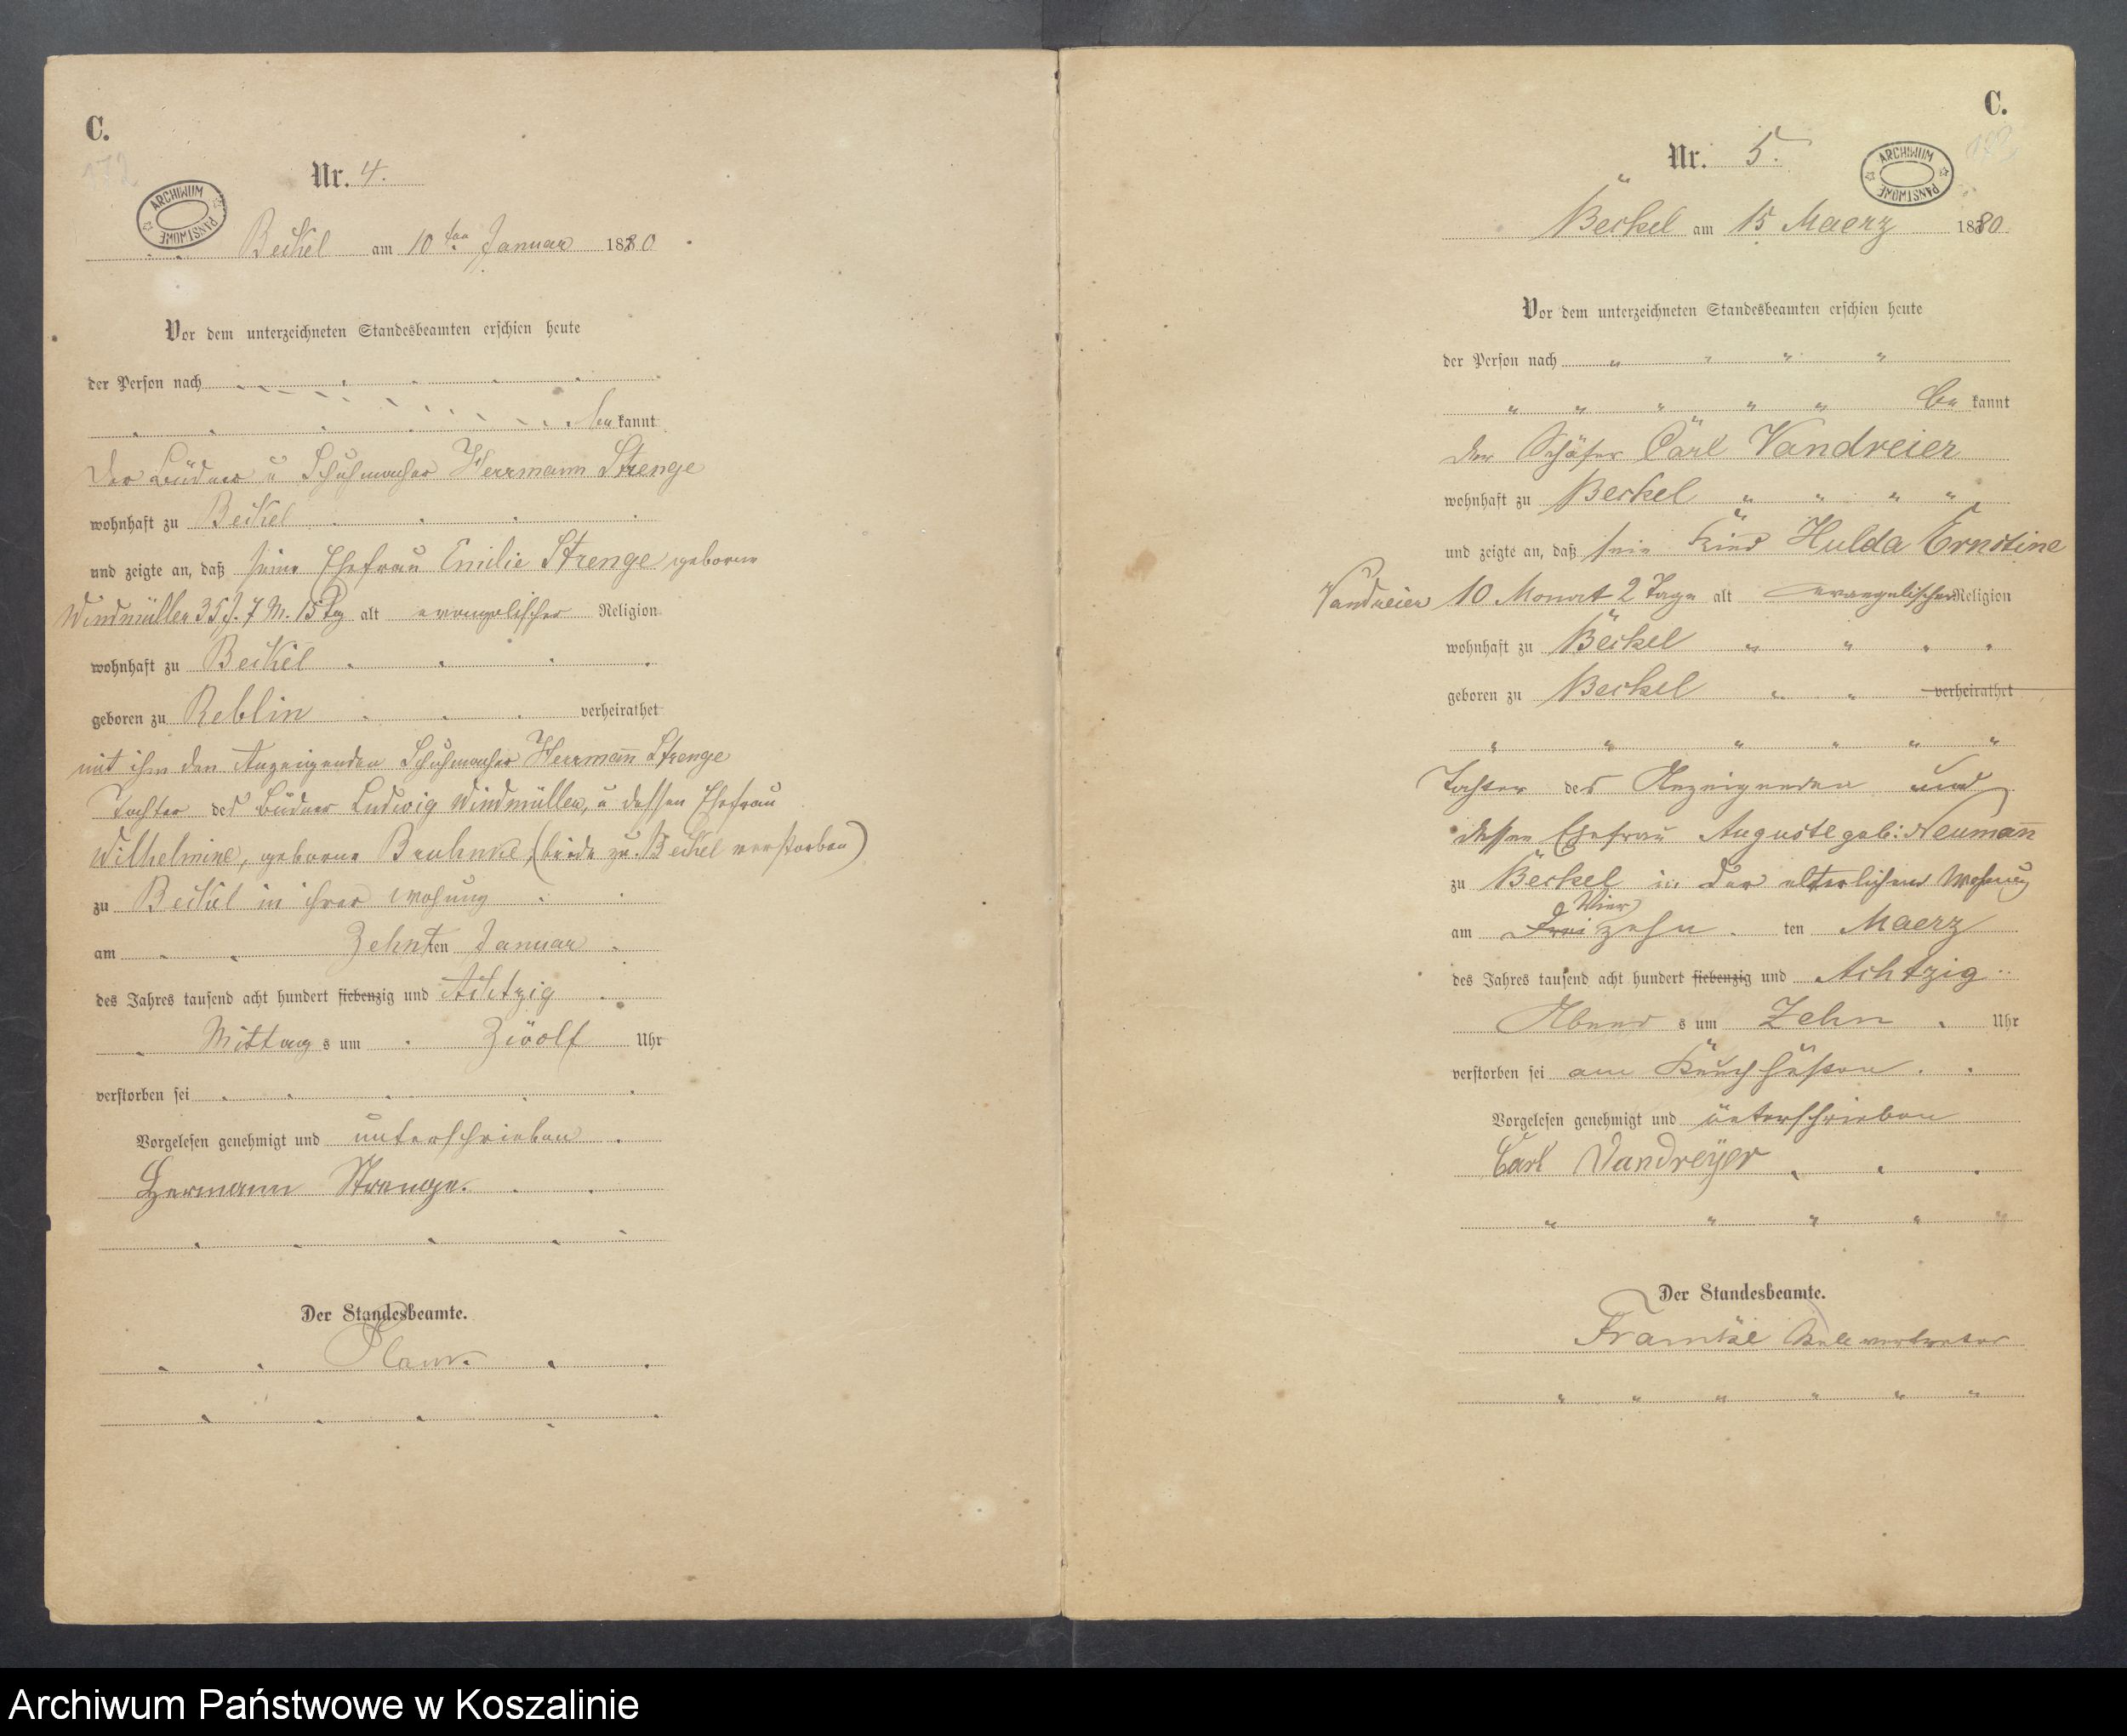 C.
172
Nr. 4.
ARCHIWUM PAŃSTWOWE
Beckel am 10ten Januar 1880
Vor dem unterzeichneten Standesbeamten erschien heute
der Person nach
be kannt
der Büdner u Schuhmacher Herrmann Strenge
wohnhaft zu Beckel
und zeigte an, daß seine Ehefrau Emilie Strenge geborne
Windmüller 35 J. 7 M. 15 Tag alt evangelischer Religion
wohnhaft zu Beckel
geboren zu Reblin verheirathet
mit ihm den Anzeigenden Schuhmacher Herrmann Strenge
Tochter des Büdner Ludwig Windmüller, u dessen Ehefrau
Wilhelmine, geborne (beide zu Beckel verstorben)
zu Beckel in ihrer Wohnung
am Zehnten Januar
des Jahres tausend acht hundert siebenzig und Achtzig
Mittag s um Zwölf Uhr
verstorben sei
Vorgelesen genehmigt und unterschrieben
Hermann Strenge.
Der Standesbeamte.
C.
Nr. 5.
ARCHIWUM PAŃSTWOWE
Beckel am 15 Maerz 1880
Vor dem unterzeichneten Standesbeamten erschien heute
der Person nach
be kannt
der Schäfer Carl Vandreier
wohnhaft zu Beckel
und zeigte an, daß sein Kind Hulda Ernstine
Vandreier 10 Monat 2 Tage alt evangelischer Religion
wohnhaft zu Beckel
geboren zu Beckel verheirathet
Tochter des Anzeigenden und
dessen Ehefrau Auguste geb: Neumann
zu Beckel in der elterlichen Wohnung
Vier
am Dreizehn ten Maerz
des Jahres tausend acht hundert siebenzig und Achtzig
Abend s um Zehn Uhr
verstorben sei am Keuchhusten
Vorgelesen genehmigt und unterschrieben
Carl Vandreyer
Der Standesbeamte.
Framke Stellvertreter
Archiwum Państwowe w Koszalinie